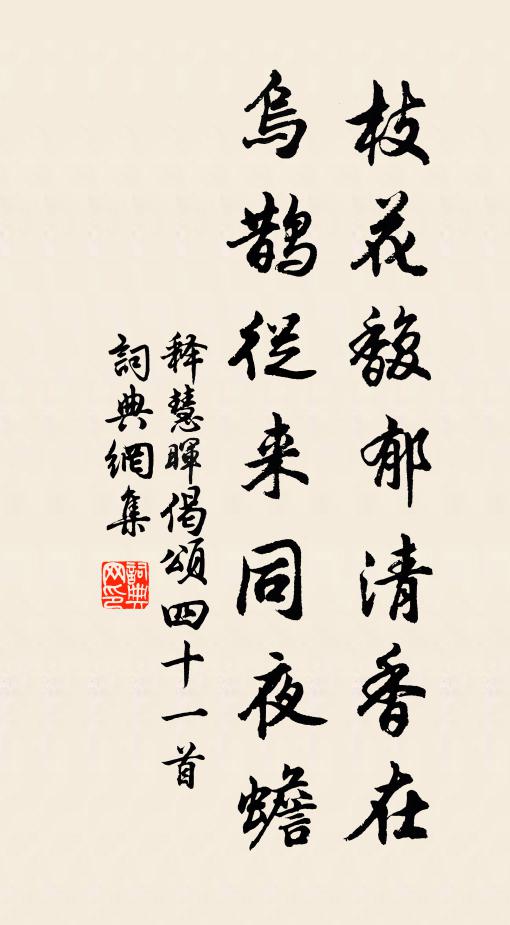 枝花馥郁清香在
烏鹊從来同夜蟾
释慧暉偈頌四十一首
詞典網集
詞典
网印